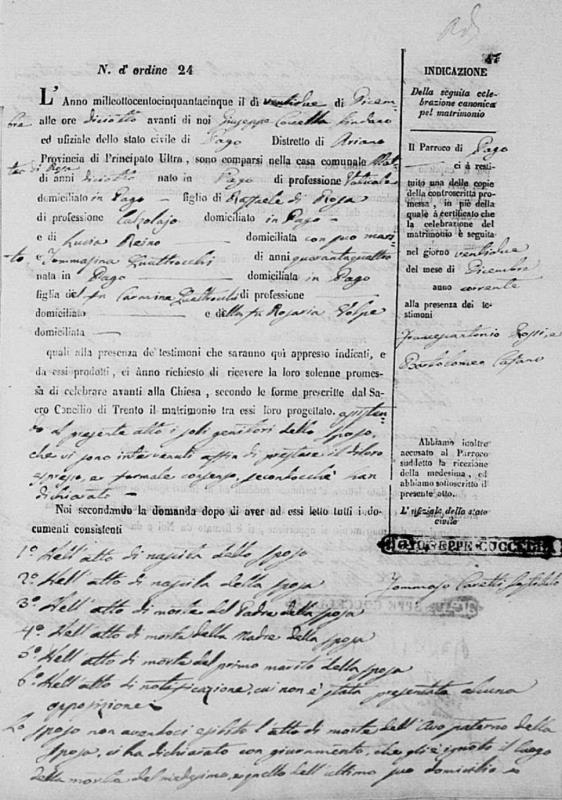 47
N. d' ordine 24
L' Anno milleottocentocinquantacinque il dì ventidue di Dicem-
bre alle ore diciotto avanti di noi Giuseppe Coccetta Sindaco
ed ufiziale dello stato civile di Pago Distretto di Ariano
Provincia di Principato Ultra, sono comparsi nella casa comunale
di Rosa
di anni diciotto nato in Pago di professione
domiciliato in Pago figlio di Raffaele di Rosa
di professione Calzolajo domiciliato in Pago
e di Lucia Reino domiciliata con suo mari-
to e Tommasina Quattrocchi di anni quarantaquattro
nata in Pago domiciliata in Pago
figlia del fu Carmine Quattrocchi di professione
domiciliato e della fu Rosaria Volpe
domiciliata
quali alla presenza de' testimoni che saranno quì appresso indicati, e
da essi prodotti, ci ànno richiesto di ricevere la loro solenne promes-
sa di celebrare avanti alla Chiesa, secondo le forme prescritte dal Sa-
cro Concilio di Trento il matrimonio tra essi loro progettato. assisten-
do al presente atto i soli genitori dello sposo,
che vi sono intervenuti affin di prestare il di loro
espresso, e formale consenso, secondochè han
dichiarato
Noi secondando la domanda dopo di aver ad essi letto tutti i do-
cumenti consistenti
1.° Nell' atto di nascita dello sposo
2.° Nell' atto di nascita della sposa
3.° Nell' atto di morte del Padre della sposa
4.° Nell' atto di morte della Madre della sposa
5.° Nell' atto di morte del primo marito della sposa
6.° Nell' atto di notificazione, cui non è stata presentata alcuna
opposizione
Lo sposo non avendoci esibito l' atto di morte dell' Avo paterno della
sposa, ci ha dichiarato con giuramento, che gli è ignoto il luogo
della morte del medesimo, e quello dell' ultimo suo domicilio
INDICAZIONE
Della seguita cele-
brazione canonica
pel matrimonio
Il Parroco di Pago
ci à resti-
tuito una delle copie
della controscritta pro-
messa, in piè della
quale à certificato che
la celebrazione del
matrimonio è seguita
nel giorno ventidue
del mese di Dicembre
anno corrente
alla presenza dei te-
stimoni
Francescantonio Rossi, e
Bartolomeo
Abbiamo inoltre
accusato al Parroco
suddetto la ricezione
della medesima, ed
abbiamo sottoscritto il
presente atto.
L' ufiziale dello stato
civile
GIUSEPPE
Tommaso